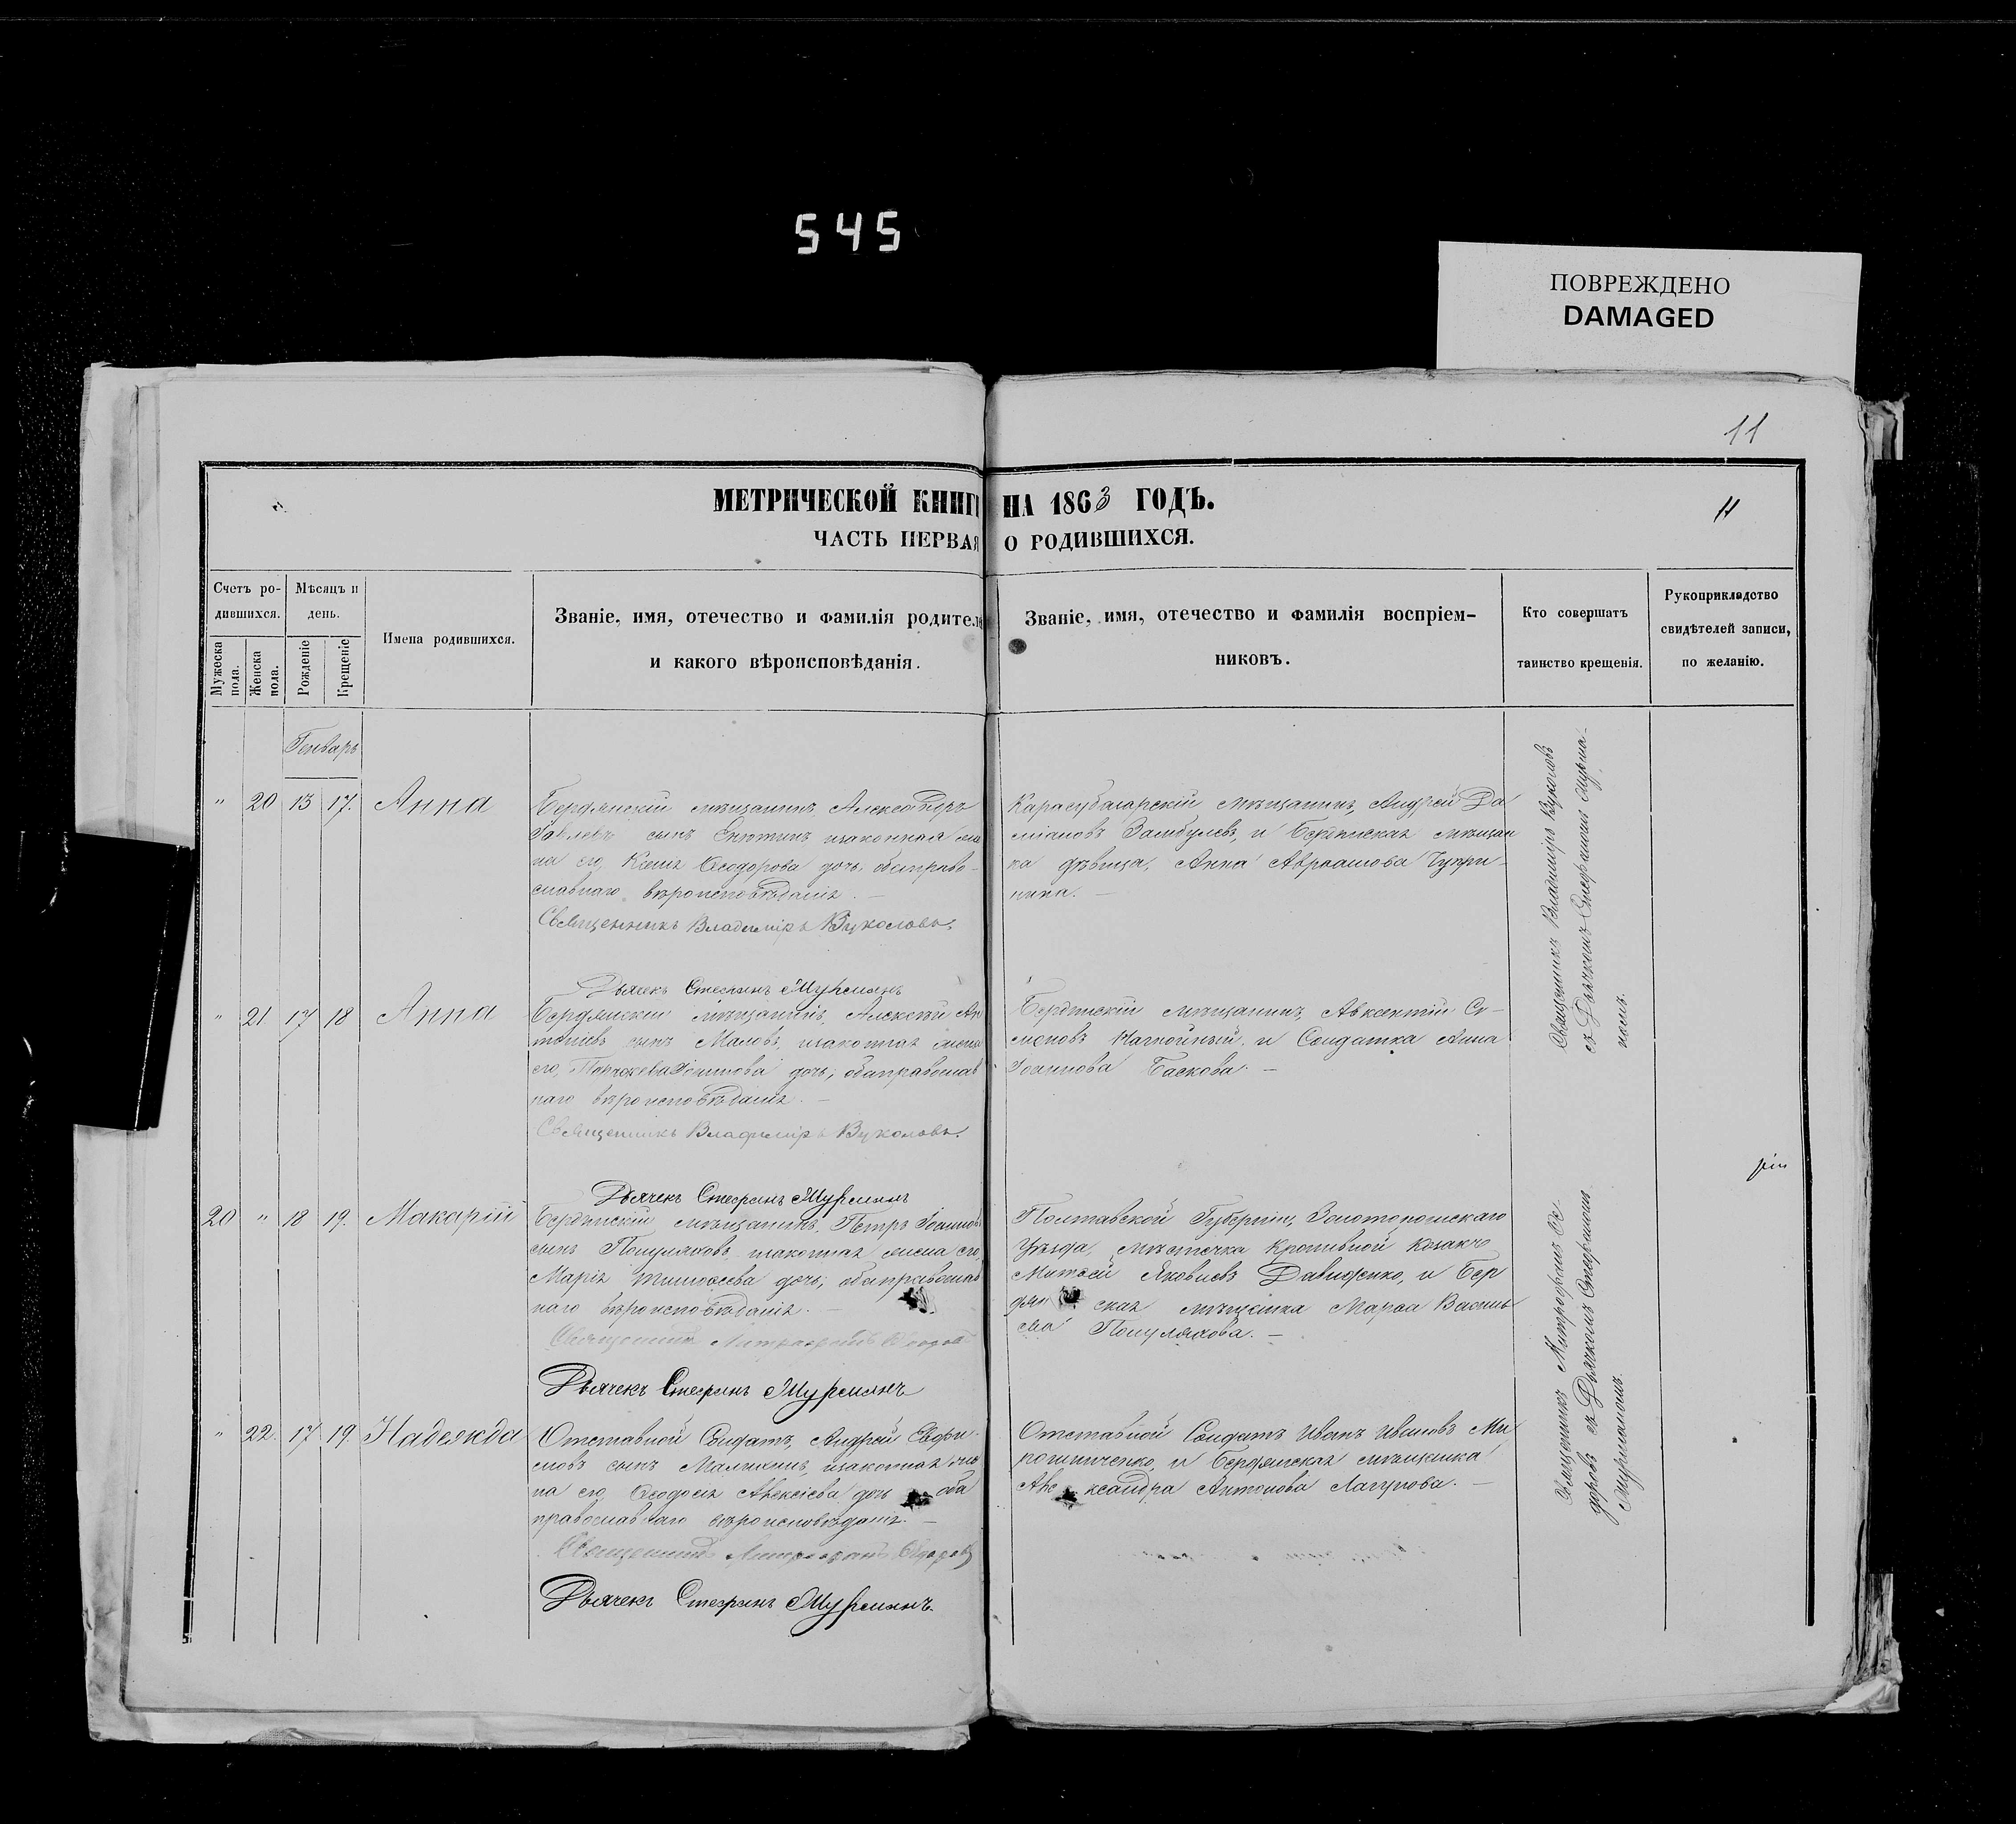 545
ПОВРЕЖДЕНО
DAMAGED
11
МЕТРИЧЕСКОЙ КНИГИ НА 1863 ГОДЪ.
11
ЧАСТЬ ПЕРВАЯ О РОДИВШИХСЯ.
Счетъ ро-
дившихся.
Мѣсяцъ и
день.
Мужеска
пола.
Женска
пола.
Рожденіе
Крещеніе
Имена родившихся.
Званіе, имя, отечество и фамилія родителей
и какого вѣроисповѣданія.
Званіе, имя, отечество и фамилія воспріем-
никовъ.
Кто совершатъ
таинство крещенія.
Рукоприкладство
свидѣтелей записи,
по желанію.
Генварь
" 20 13 17. Анна
Бердянскій мѣщанинъ, Александръ
сынъ законная же
на его, Ксенія Ѳеодорова дочь, оба право-
славнаго вѣроисповѣданія. —
Священникъ Владиміръ Вуколовъ.
Дьячекъ Стефанъ Мурманъ
Карасубазарскій мѣщанинъ, Андрей Да
міановъ и Бердянская мѣщан
ка дѣвица, Анна Авраамова
Священникъ Владиміръ Вуколовъ
съ Дьячкомъ Стефаномъ Мурма-
номъ.
" 21 17 18 Анна
Бердянскій мѣщанинъ, Алексѣй Ан
тоніевъ сынъ Маловъ, законная жена
его, дочь, оба православ
наго вѣроисповѣданія. —
Священникъ Владиміръ Вуколовъ.
Дьячекъ Стефанъ Мурманъ
Бердянскій мѣщанинъ, Авксентій Си-
меновъ и Солдатка Анна
Іоаннова Баскова. —
20 " 18 19. Макарій
Бердянскій мѣщанинъ, Петръ Іоанновъ
сынъ Полуляховъ, законная жена его,
Марія Тимоѳеева дочь, оба православ
наго вѣроисповѣданія. —
Священникъ Митрофанъ Ѳедоровъ
Дьячекъ Стефанъ Мурманъ
Полтавской Губерніи, Золотоношскаго
Уѣзда, мѣстечка Кропивной козакъ
Матѳей Яковлевъ Давиденко, и Бер
дян ская мѣщанка Марѳа Василь
ева Полуляхова. —
Священникъ Митрофанъ Ѳе-
доровъ съ Дьячкомъ Стефаномъ
Мурманомъ.
" 22. 17 19 Надежда
Отставной Солдатъ, Андрей Евфи-
мовъ сынъ законная же
на его, Ѳеодосія Алексіева дочь оба
православнаго вѣроисповѣданія. —
Священникъ Митрофанъ Ѳедоровъ
Дьячекъ Стефанъ Мурманъ.
Отставной Солдатъ Иванъ Ивановъ Ми
и Бердянская мѣщанка
Але ксандра Антонова Лагунова. —